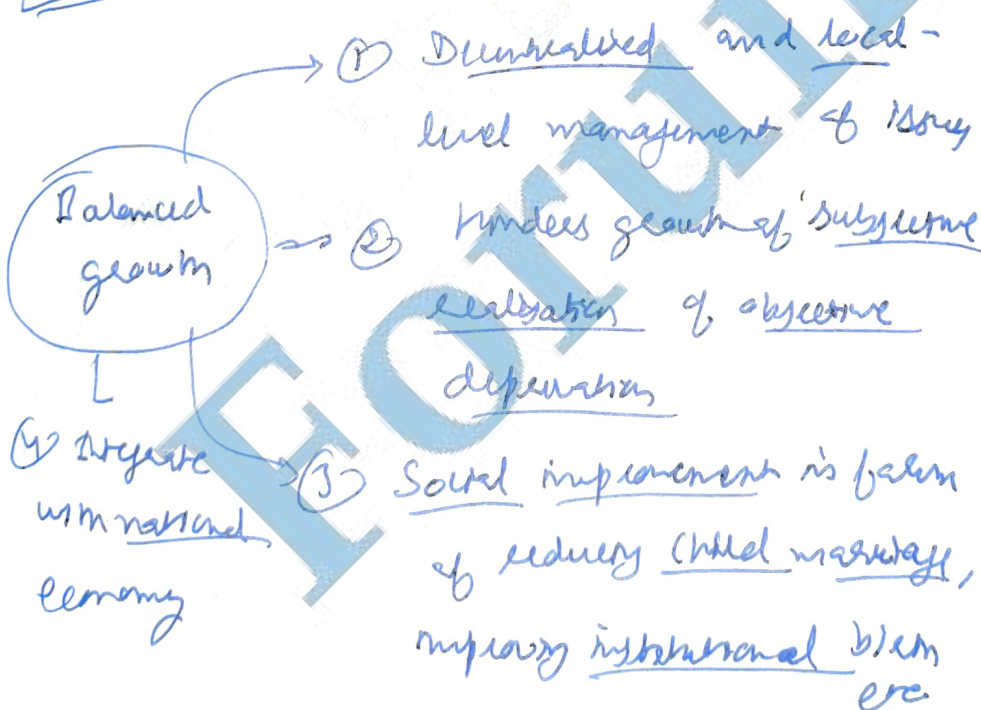 ① Decentralised and local-
level management of issues
Balanced
growth
② Hinders growth of 'subjective
realisation of objective
deprivation
③ Social improvement in form
of reducing child marriage,
improving institutional birth
etc
④ Integrate
with national
economy
Forum